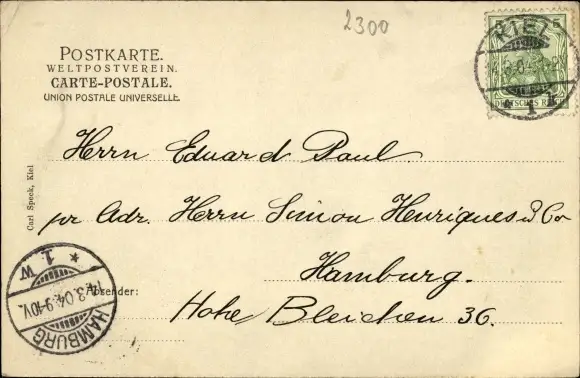 2300
POSTKARTE.
WELTPOSTVEREIN.
CARTE-POSTALE.
UNION POSTALE UNIVERSELLE.
KIEL
5
DEUTSCHES REICH
1 k
Herrn Eduard Paul.
pr Adr. Herrn Simon Henriques & Co
Hamburg.
Hohe Bleichen 36.
Absender:
Carl Speck, Kiel
* 1. W
14.3.04.9-10V.
HAMBURG